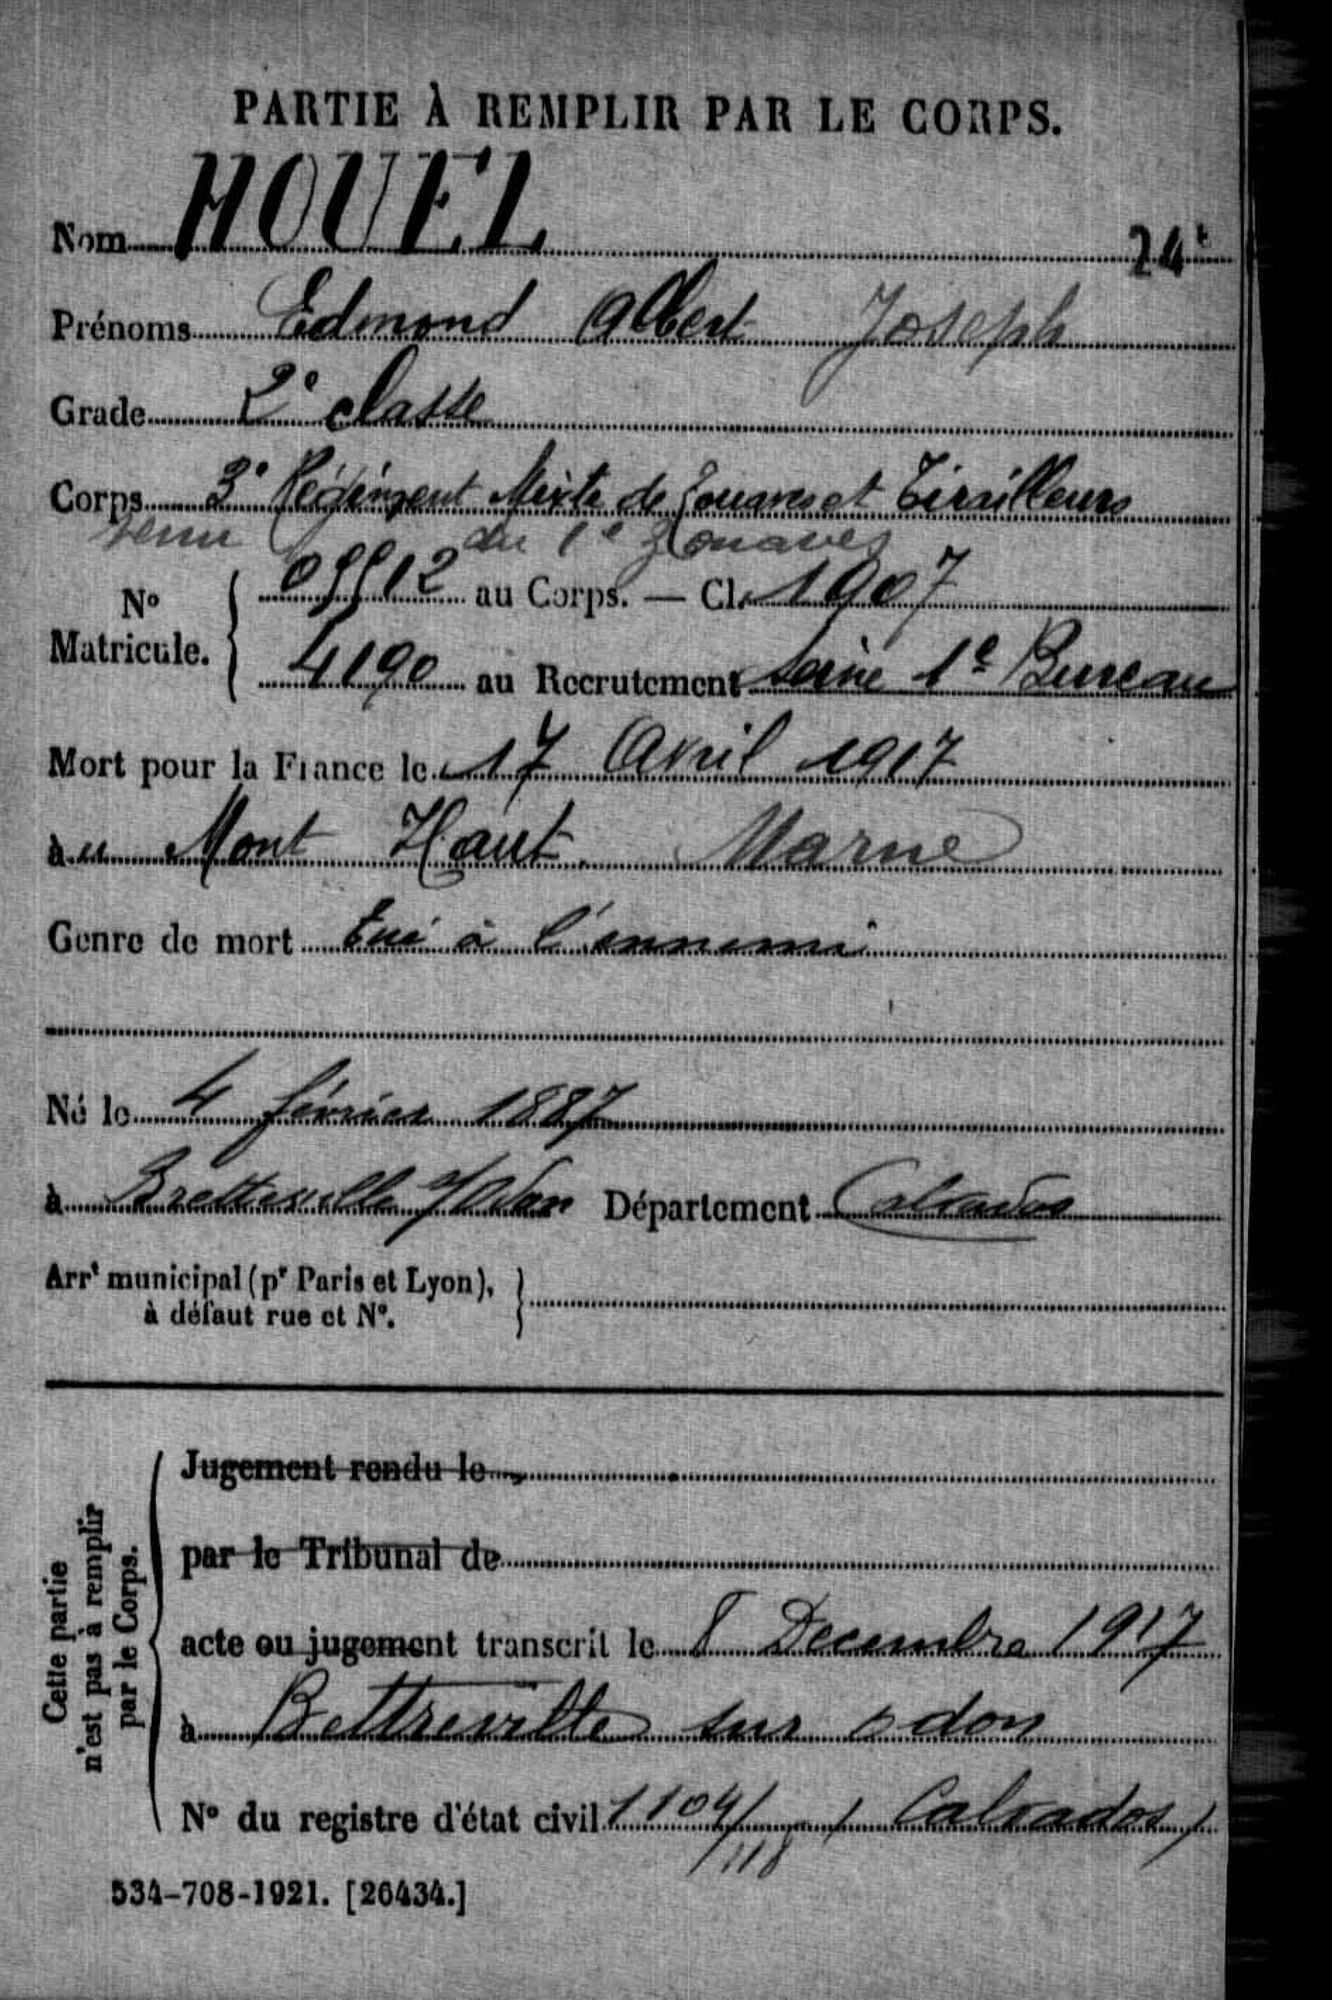 PARTIE À REMPLIR PAR LE CORPS.
Nom HOUEL
24
Prénoms Edmond Albert Joseph
Grade 2e classe
Corps 3e Régiment Mixte de Zouaves et Tirailleurs
venu du 1e Zouaves
No Matricule. au Corps. — Cl. 1907
4190 au Recrutement Seine 1e Bureau
Mort pour la France le 17 Avril 1917
àu Mont Haut Marne
Genre de mort Tué à l'ennemi
Né le 4 février 1887
à Bretteville s/Odon Département Calvados
Arrt municipal (pr Paris et Lyon),
à défaut rue et No.
Cette partie
n'est pas à remplir
par le Corps.
Jugement rendu le
par le Tribunal de
acte ou jugement transcrit le 8 Decembre 1917
à Bettreville sur odon
No du registre d'état civil 1104/118 (Calvados)
534-708-1921. [26434.]